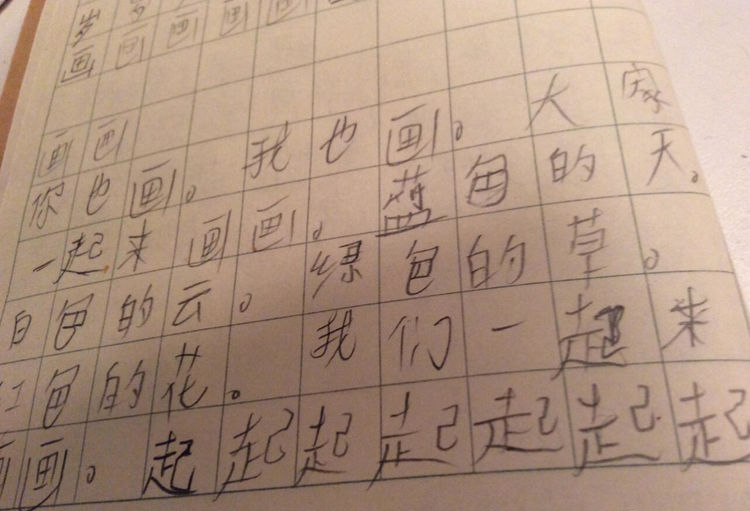 岁
画画画画画
画画
你也画。我也画。大家
一起来画画。蓝色的天。
白色的云。绿色的草。
红色的花。我们一起来
画画。起起起起起起起